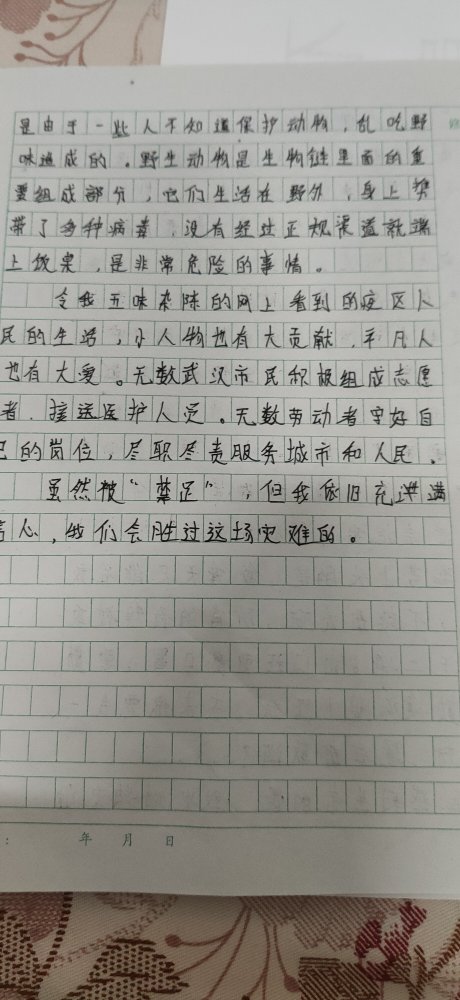 是由于一些人不知道保护动物，乱吃野
味造成的。野生动物是生物链里面的重
要组成部分，它们生活在野外，身上携
带了多种病毒，没有经过正规渠道就端
上饭桌，是非常危险的事情。
令我五味杂陈的网上看到的疫区人
民的生活，小人物也有大贡献，平凡人
也有大爱。无数武汉市民积极组成志愿
者，接送医护人员。无数劳动者守好自
己的岗位，尽职尽责服务城市和人民。
虽然被“禁足”，但我依旧充满满
信心，我们会胜过这场灾难的。
年 月 日